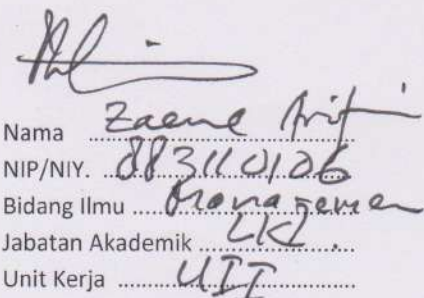 Nama Zaenal Arifin
NIP/NIY. 883110106
Bidang Ilmu Manajemen
Jabatan Akademik LKL.
Unit Kerja UII